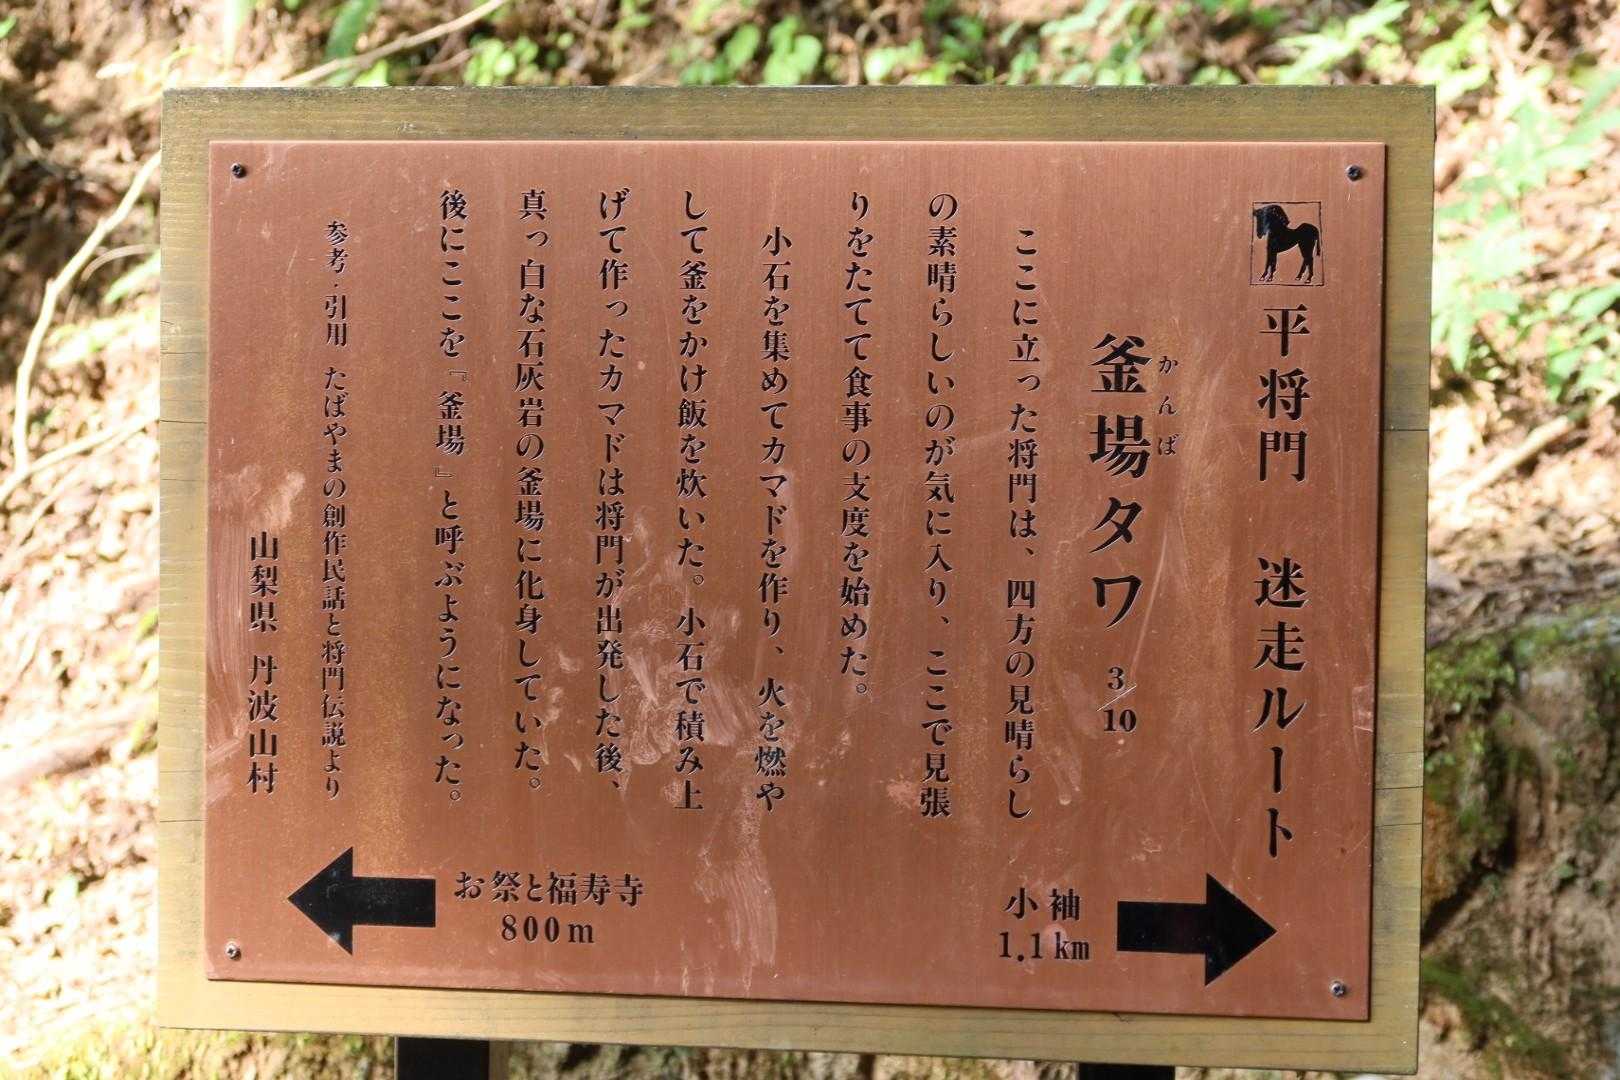 平将門 迷走ルート
かんば
釜場タワ 3/10
ここに立った将門は、四方の見晴らし
の素晴らしいのが気に入り、ここで見張
りをたてて食事の支度を始めた。
小石を集めてカマドを作り、火を燃や
して釜をかけ飯を炊いた。小石で積み上
げて作ったカマドは将門が出発した後、
真っ白な石灰岩の釜場に化身していた。
後にここを『釜場』と呼ぶようになった。
参考・引用 たばやまの創作民話と将門伝説より
山梨県 丹波山村
お祭と福寿寺
800m
小袖
1.1km